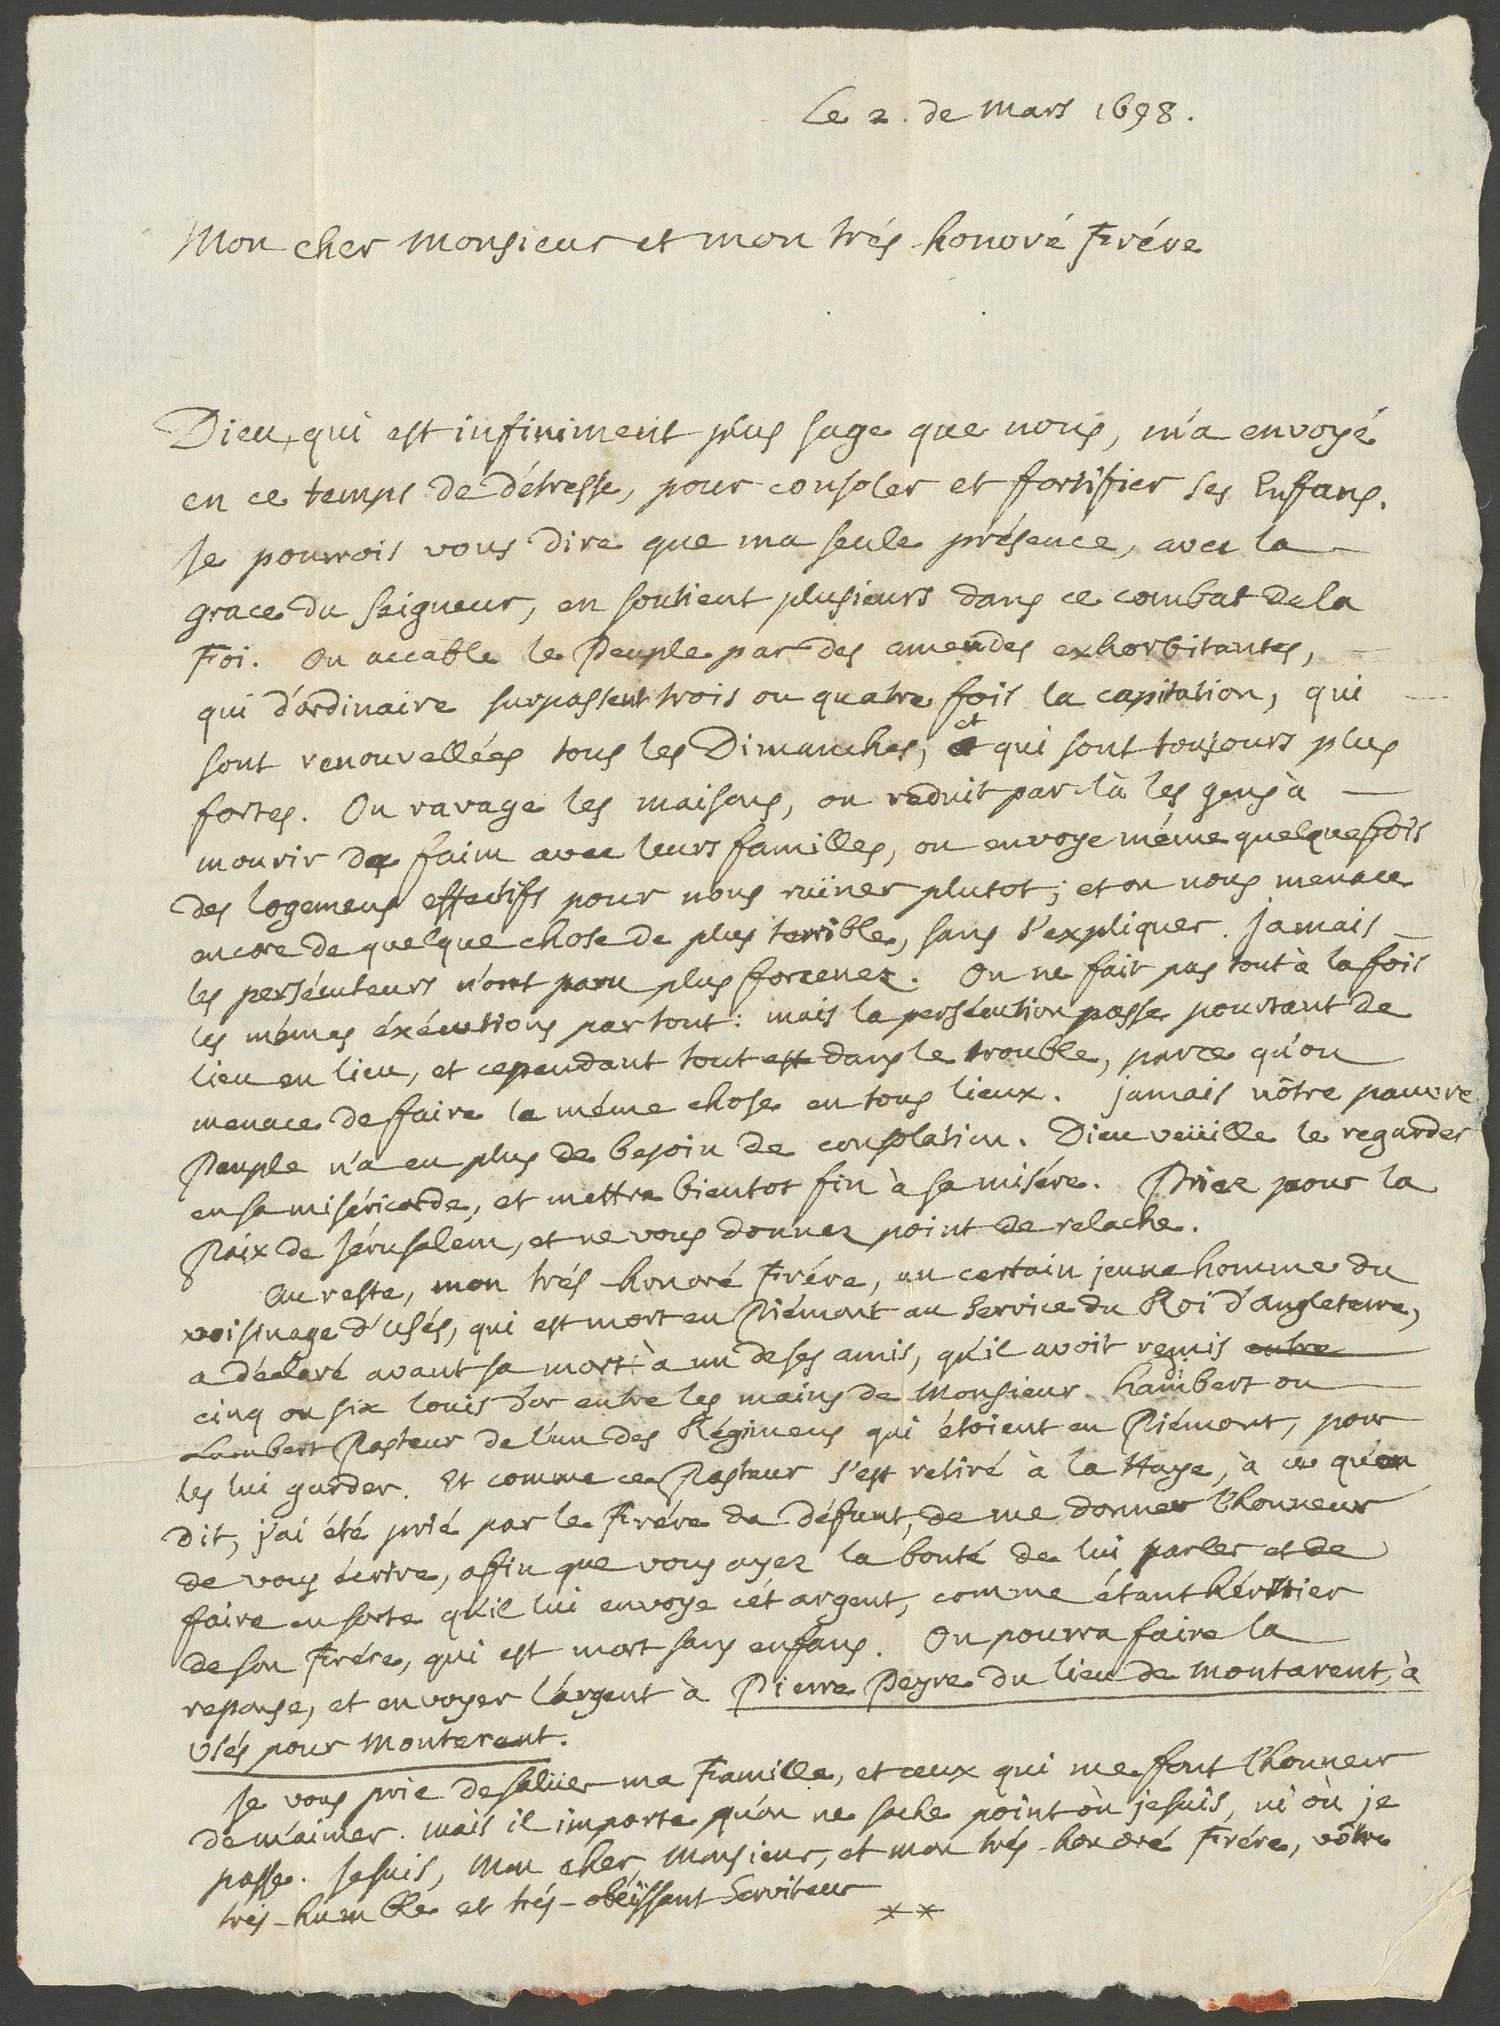 Le 2. de Mars 1698.
Mon cher Monsieur et mon trés-honoré Frére
Dieu, qui est infiniment plus sage que nous, m'a envoyé
en ce temps de détresse, pour consoler et fortifier ses Enfans.
Je pourrois vous dire que ma seule présence, avec la
grace du Seigneur, en soutient plusieurs dans ce combat de la
Foi. On accable le Peuple par des amendes exhorbitantes,
qui d'ordinaire surpassent trois ou quatre fois la capitation, qui
sont renouvellées tous les Dimanches, et qui sont toujours plus
fortes. On ravage les maisons, on reduit par-là les gens à
mourir de faim avec leurs familles, on envoye même quelquefois
des logemens effectifs pour nous ruïner plutot; et on nous menace
encore de quelque chose de plus terrible, sans s'expliquer. Jamais
les persécuteurs n'ont paru plus forcenez. On ne fait pas tout à la fois
les mêmes éxécutions partout: mais la persécution passe pourtant de
lieu en lieu, et cependant tout est dans le trouble, parce qu'on
menace de faire la même chose en tous lieux. Jamais nôtre pauvre
Peuple n'a eu plus de besoin de consolation. Dieu veüille le regarder
en sa miséricorde, et mettre bientot fin à sa misére. Priez pour la
Paix de Jérusalem, et ne vous donnez point de relache.
Au reste, mon trés-honoré Frére, un certain jeune homme du
voisinage d'Usés, qui est mort en Piémont au service du Roi d'Angleterre,
a déclaré avant sa mort à un de ses amis, qu'il avoit remis entre
cinq ou six louis d'or entre les mains de Monsieur hambert ou
Lambert Pasteur de l'un des Régimens qui étoient en Piémont, pour
les lui garder. Et comme ce Pasteur s'est retiré à la Haye, à ce qu'on
dit, j'ai été prié par le Frére du défunt, de me donner l'honneur
de vous écrire, afin que vous ayez la bonté de lui parler et de
faire en sorte qu'il lui envoye cét argent, comme étant héritier
de son Frére, qui est mort sans enfans. On pourra faire la
reponse, et envoyer l'argent à Pierre Peyre du lieu de Montarent, à
Usés pour Monterant.
Je vous prie de salüer ma Famille, et ceux qui me font l'honneur
de m'aimer. Mais il importe qu'on ne sache point où je suis, ni où je
passe. Je suis, Mon cher Monsieur, et mon trés-honoré Frére, vôtre
trés-humble et trés-obéïssant Serviteur
**